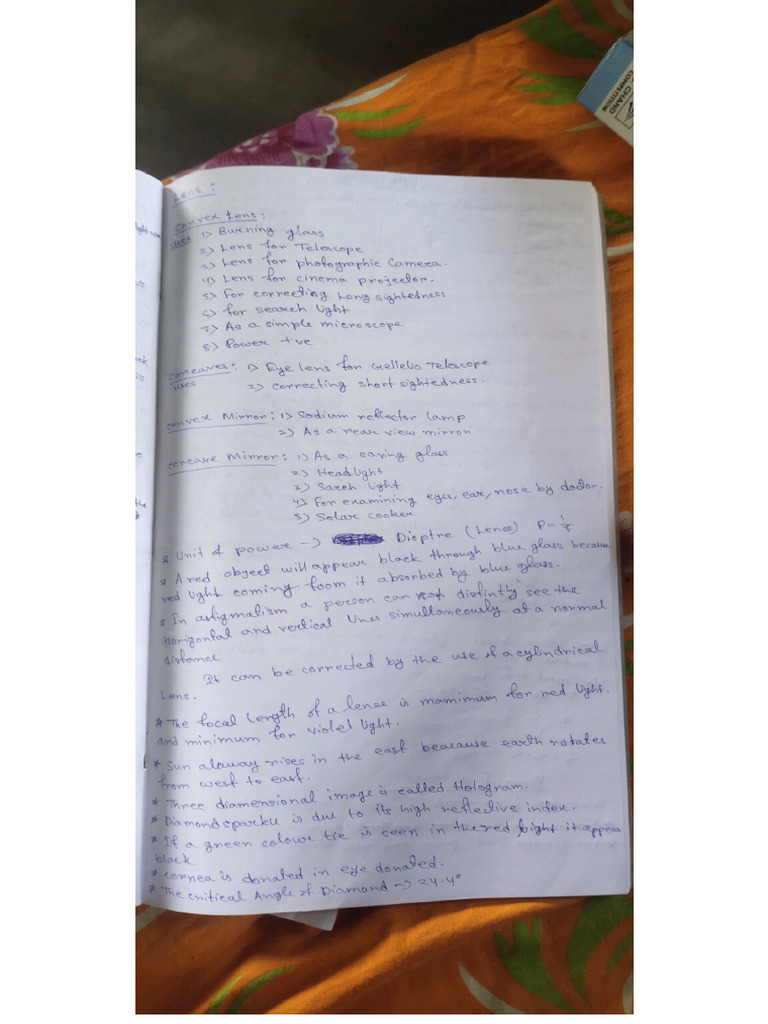 CHAND
COMPETITION
Lens :
Convex Lens :
uses 1) Burning glass
2) Lens for Telescope
3) Lens for photographic Camera.
4) Lens for cinema projector.
5) For correcting Long sightedness.
6) for search light
7) As a simple microscope
8) Power +ve
Concaves : 1) Eye lens for Gellelio Telescope
uses 2) correcting short sightedness.
Convex Mirror : 1) Sodium reflector lamp
2) As a rear view mirror
Concave Mirror : 1) As a caving glass
2) Headlight
3) Sarch light
4) For examining eyes, ear, nose by doctor.
5) Solar cooker
* Unit of power -> Dioptre (Lence) P = 1/f
* A red object will appear black through blue glass because
red light coming foom it absorbed by blue glass.
* In astigmatism a person can not distintly see the
horigontal and vertical lines simultaneously at a normal
distance
It can be corrected by the use of a cylindrical
Lens.
* The focal length of a lence is mamimum for red light.
and minimum for violet light.
* Sun alaway rises in the east beacause earth rotates
from west to east.
* Three diamensional image is called Hologram.
* Diamond sparkle is due to its high reflective index.
* If a green colour tie is seen in the red light it appear
black
* cornea is donated in eye donated.
* The critical Angle of Diamond -> 24.4°